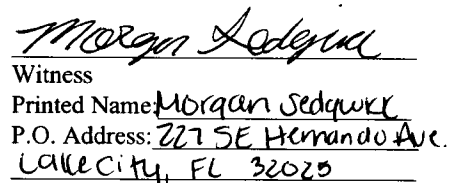 Morgan Sedgwick
Witness
Printed Name: Morgan Sedgwick
P.O. Address: 227 SE Hernando Ave.
Lake City, FL 32025